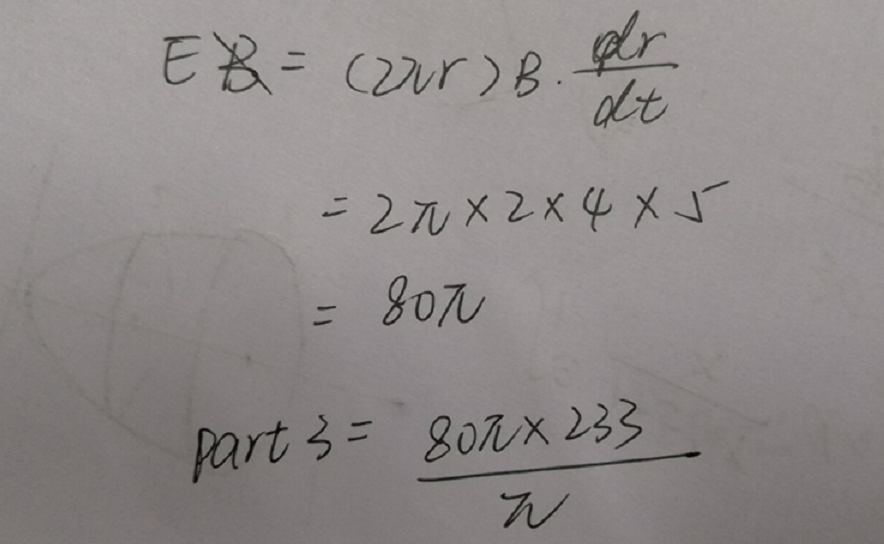 E = (2πr) B · dr/dt
= 2π × 2 × 4 × 5
= 80π
part 3 = 80π × 233 / π